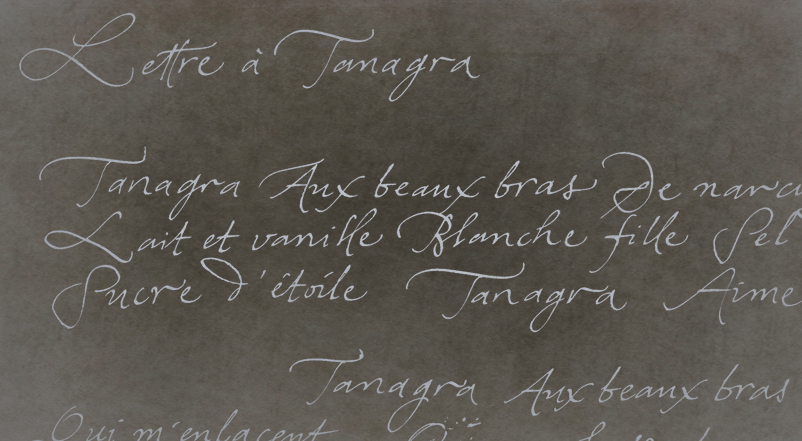 Lettre à Tanagra
Tanagra Aux beaux bras De
Lait et vanille Blanche fille Sel
Sucre d'étoile Tanagra Aime
Tanagra Aux beaux bras
Qui m'enlacent